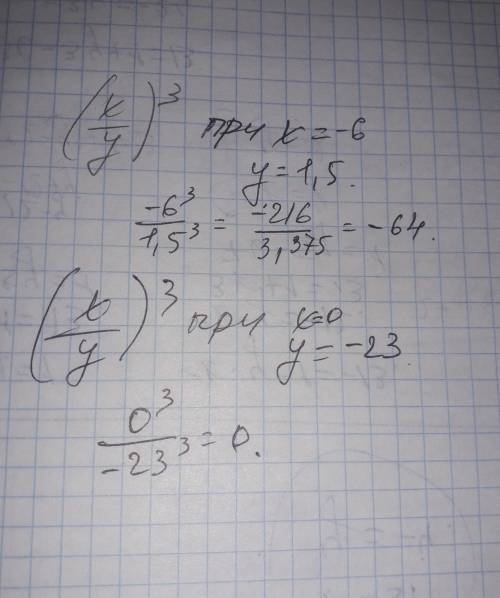 (x/y)³ при x = -6
y = 1,5.
-6³/1,5³ = -216/3,375 = -64.
(x/y)³ при x=0
y = -23.
0³/-23³ = 0.